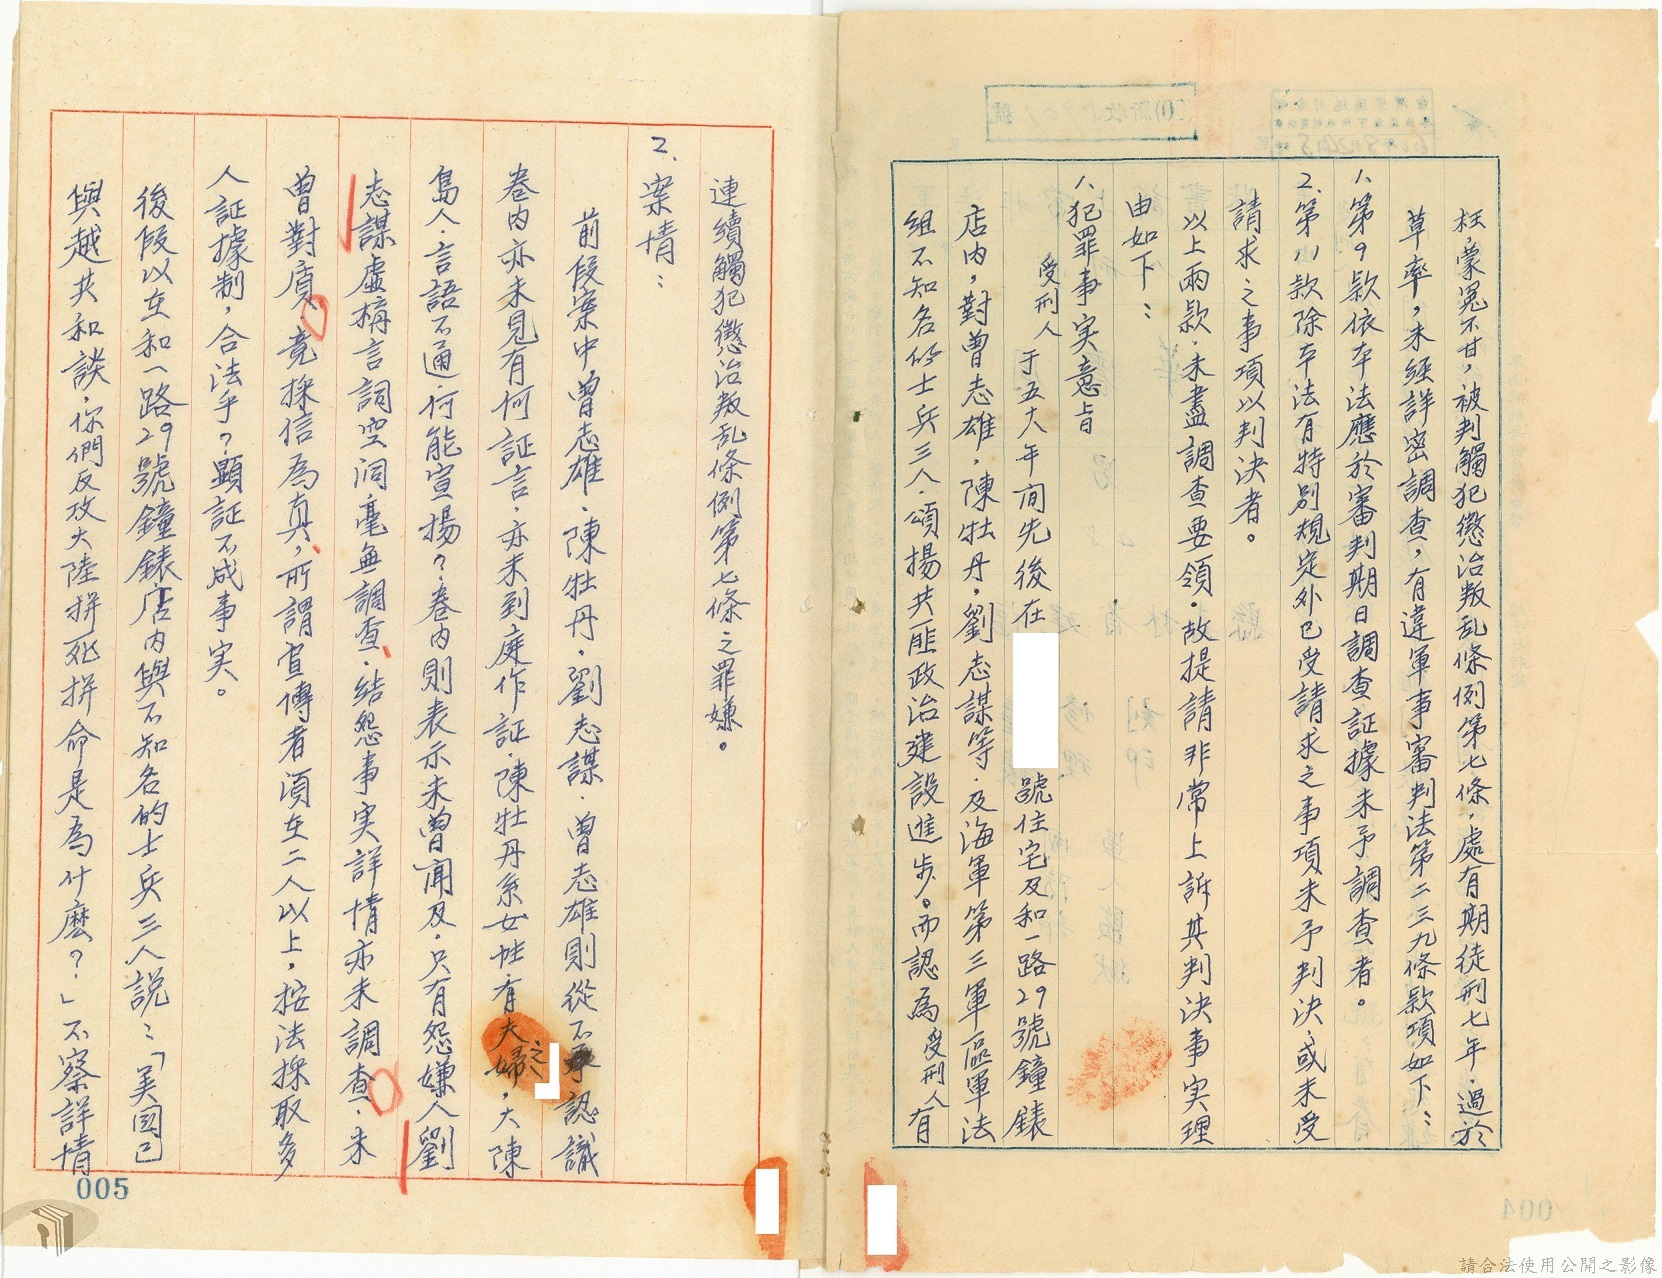 枉,蒙冤不甘,被判觸犯懲治叛乱條例第七條,處有期徒刑七年,過於
草率,未經詳密調查,有違軍事審判法第二三九條款項如下:
1、第9款依本法應於審判期日調查証據未予調查者。
2、第八款除本法有特別規定外已受請求之事項未予判決或未受
請求之事項以判決者。
以上兩款,未盡調查要領。故提請非常上訴其判決事实理
由如下:
1、犯罪事实意旨
受刑人于五六年间先後在 號住宅及和一路29號鐘錶
店内,對曾志雄,陳牡丹,劉志謀等,及海軍第三軍區軍法
組不知名的士兵三人,頌揚共匪政治建設進步。而認為受刑人有
連續觸犯懲治叛乱條例第七條之罪嫌。
2、案情:
前段案中曾志雄、陳牡丹、劉志謀,曾志雄則從不認識
卷内亦未見有何証言,亦未到庭作証,陳牡丹系女性,有夫之婦,大陳
島人,言語不通,何能宣揚?卷内則表示未曾聞及,只有怨嫌人劉
志謀虛構言詞空洞毫無調查,結怨事实詳情亦未調查,未
曾對質,竟採信為真,所謂宣傳者須在二人以上,按法採取多
人証據制,合法乎?顯証不成事实。
後假以在和一路29號鐘錶店内與不知名的士兵三人説:「美国已
與越共和談,你們反攻大陸拼死拼命是為什麼?」不察詳情
005
004
請合法使用公開之影像